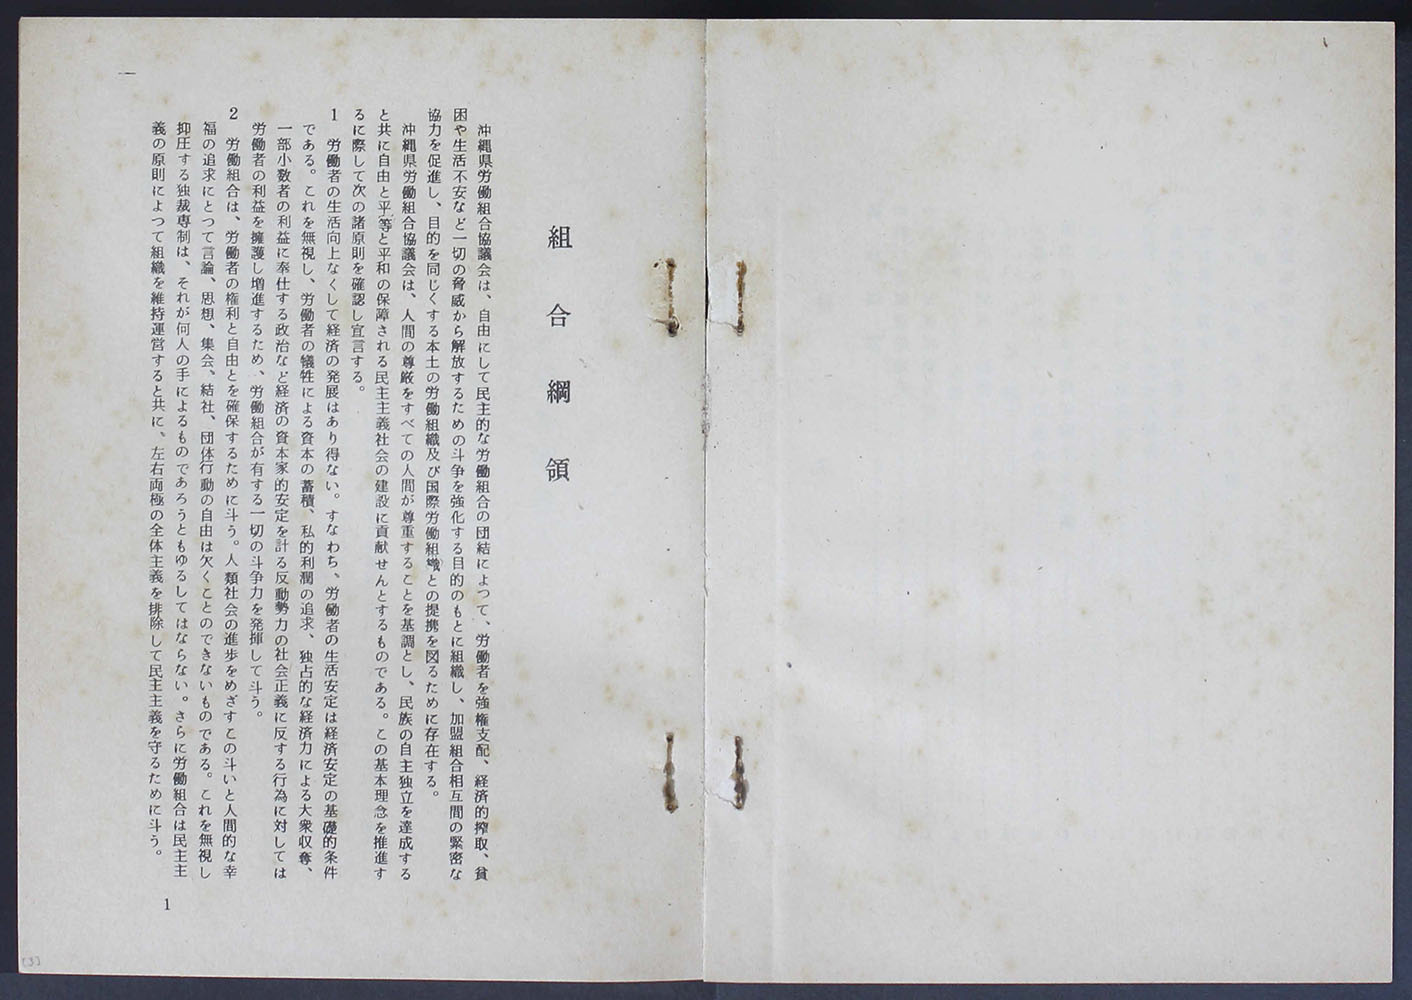 組合綱領
沖縄県労働組合協議会は、自由にして民主的な労働組合の団結によつて、労働者を強権支配、経済的搾取、貧
困や生活不安など一切の脅威から解放するための斗争を強化する目的のもとに組織し、加盟組合相互間の緊密な
協力を促進し、目的を同じくする本土の労働組織及び国際労働組織との提携を図るために存在する。
沖縄県労働組合協議会は、人間の尊厳をすべての人間が尊重することを基調とし、民族の自主独立を達成する
と共に自由と平等と平和の保障される民主主義社会の建設に貢献せんとするものである。この基本理念を推進す
るに際して次の諸原則を確認し宣言する。
1 労働者の生活向上なくして経済の発展はあり得ない。すなわち、労働者の生活安定は経済安定の基礎的条件
である。これを無視し、労働者の犠牲による資本の蓄積、私的利潤の追求、独占的な経済力による大衆収奪、
一部小数者の利益に奉仕する政治など経済の資本家的安定を計る反動勢力の社会正義に反する行為に対しては
労働者の利益を擁護し増進するため、労働組合が有する一切の斗争力を発揮して斗う。
2 労働組合は、労働者の権利と自由とを確保するために斗う。人類社会の進歩をめざすこの斗いと人間的な幸
福の追求にとつて言論、思想、集会、結社、団体行動の自由は欠くことのできないものである。これを無視し
抑圧する独裁専制は、それが何人の手によるものであろうともゆるしてはならない。さらに労働組合は民主主
義の原則によつて組織を維持運営すると共に、左右両極の全体主義を排除して民主主義を守るために斗う。
1
(3)